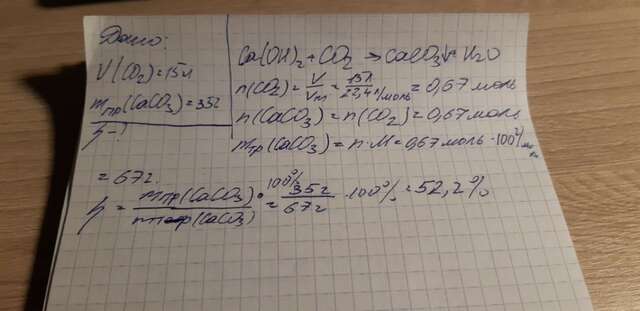 Дано:
V(CO₂)=15л
mпр(CaCO₃)=35г
η-?
Ca(OH)₂+CO₂→CaCO₃↓+H₂O
n(CO₂)=V/Vm=15л/22,4л/моль=0,67моль
n(CaCO₃)=n(CO₂)=0,67моль
mпр(CaCO₃)=n·M=0,67моль·100г/моль
=67г.
η=mпр(CaCO₃)/mтеор(CaCO₃)·100%=35г/67г·100%=52,2%